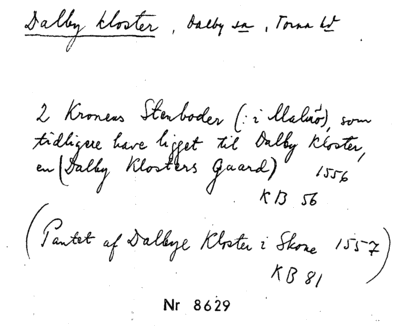 Dalby kloster, Dalby sn, Torna hd
2 Kronens Stenboder (: i Malmö), som
tidligere have ligget til Dalby Kloster,
en (Dalby Klosters Gaard) 1556
KB 56
(Pantet af Dalbye Kloster i Skone 1557)
KB 81
Nr 8629